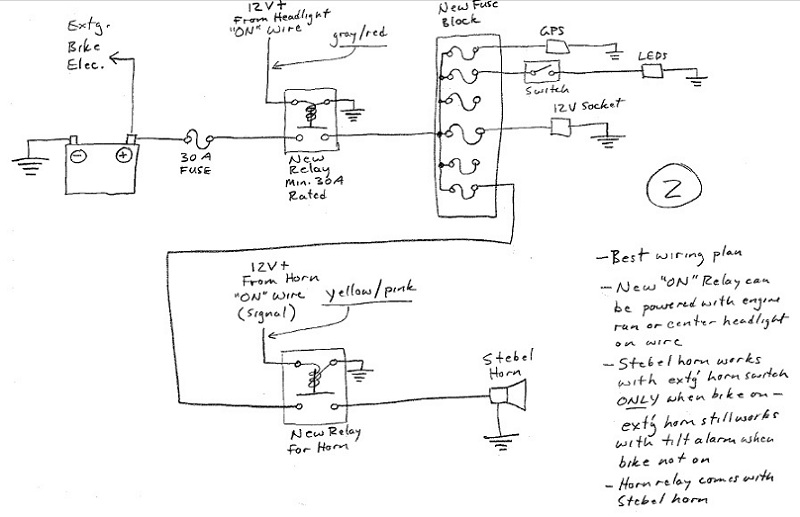 12V+
From Headlight
"ON" Wire
gray/red
New Fuse
Block
Extg.
Bike
Elec.
GPS
LEDs
Switch
12V Socket
30A
FUSE
New
Relay
Min. 30A
Rated
2
12V+
From Horn
"ON" Wire
(Signal)
yellow/pink
Stebel
Horn
New Relay
for Horn
- Best wiring plan
- New "ON" Relay can
be powered with engine
run or center headlight
on wire
- Stebel horn works
with extg horn switch
ONLY when bike on -
extg horn still works
with tilt alarm when
bike not on
- Horn relay comes with
Stebel horn